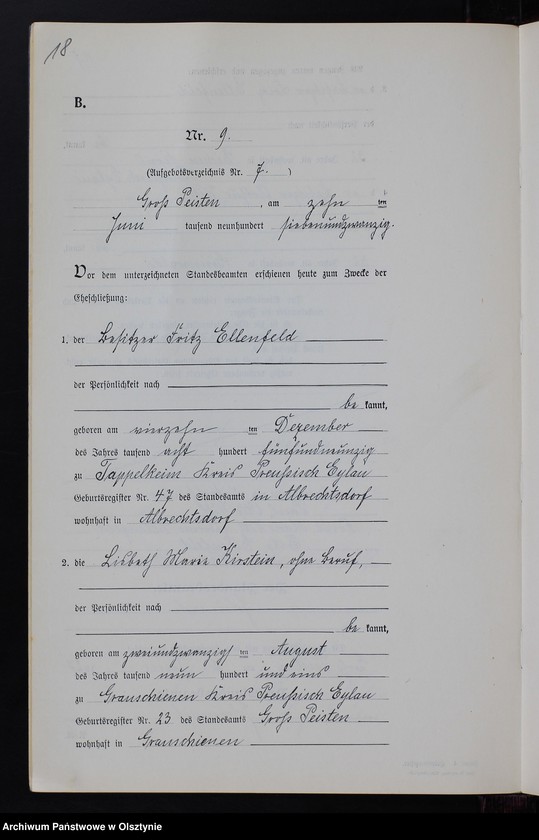 18
B.
Nr. 9.
(Aufgebotsverzeichnis Nr. 7. )
Groß Peisten, am zehn ten
Juni tausend neunhundert siebenundzwanzig.
Vor dem unterzeichneten Standesbeamten erschienen heute zum Zwecke der
Eheschließung:
1. der Besitzer Fritz Ellenfeld
der Persönlichkeit nach
be kannt,
geboren am vierzehn ten Dezember
des Jahres tausend acht hundert fünfundneunzig
zu Tappelkeim Kreis Preußisch Eylau
Geburtsregister Nr. 47 des Standesamts in Albrechtsdorf
wohnhaft in Albrechtsdorf
2. die Lisbeth Marie Kirstein, ohne Beruf,
der Persönlichkeit nach
be kannt,
geboren am zweiundzwanzigs ten August
des Jahres tausend neun hundert und eins
zu Grauschienen Kreis Preußisch Eylau
Geburtsregister Nr. 23 des Standesamts Groß Peisten
wohnhaft in Grauschienen
Archiwum Państwowe w Olsztynie